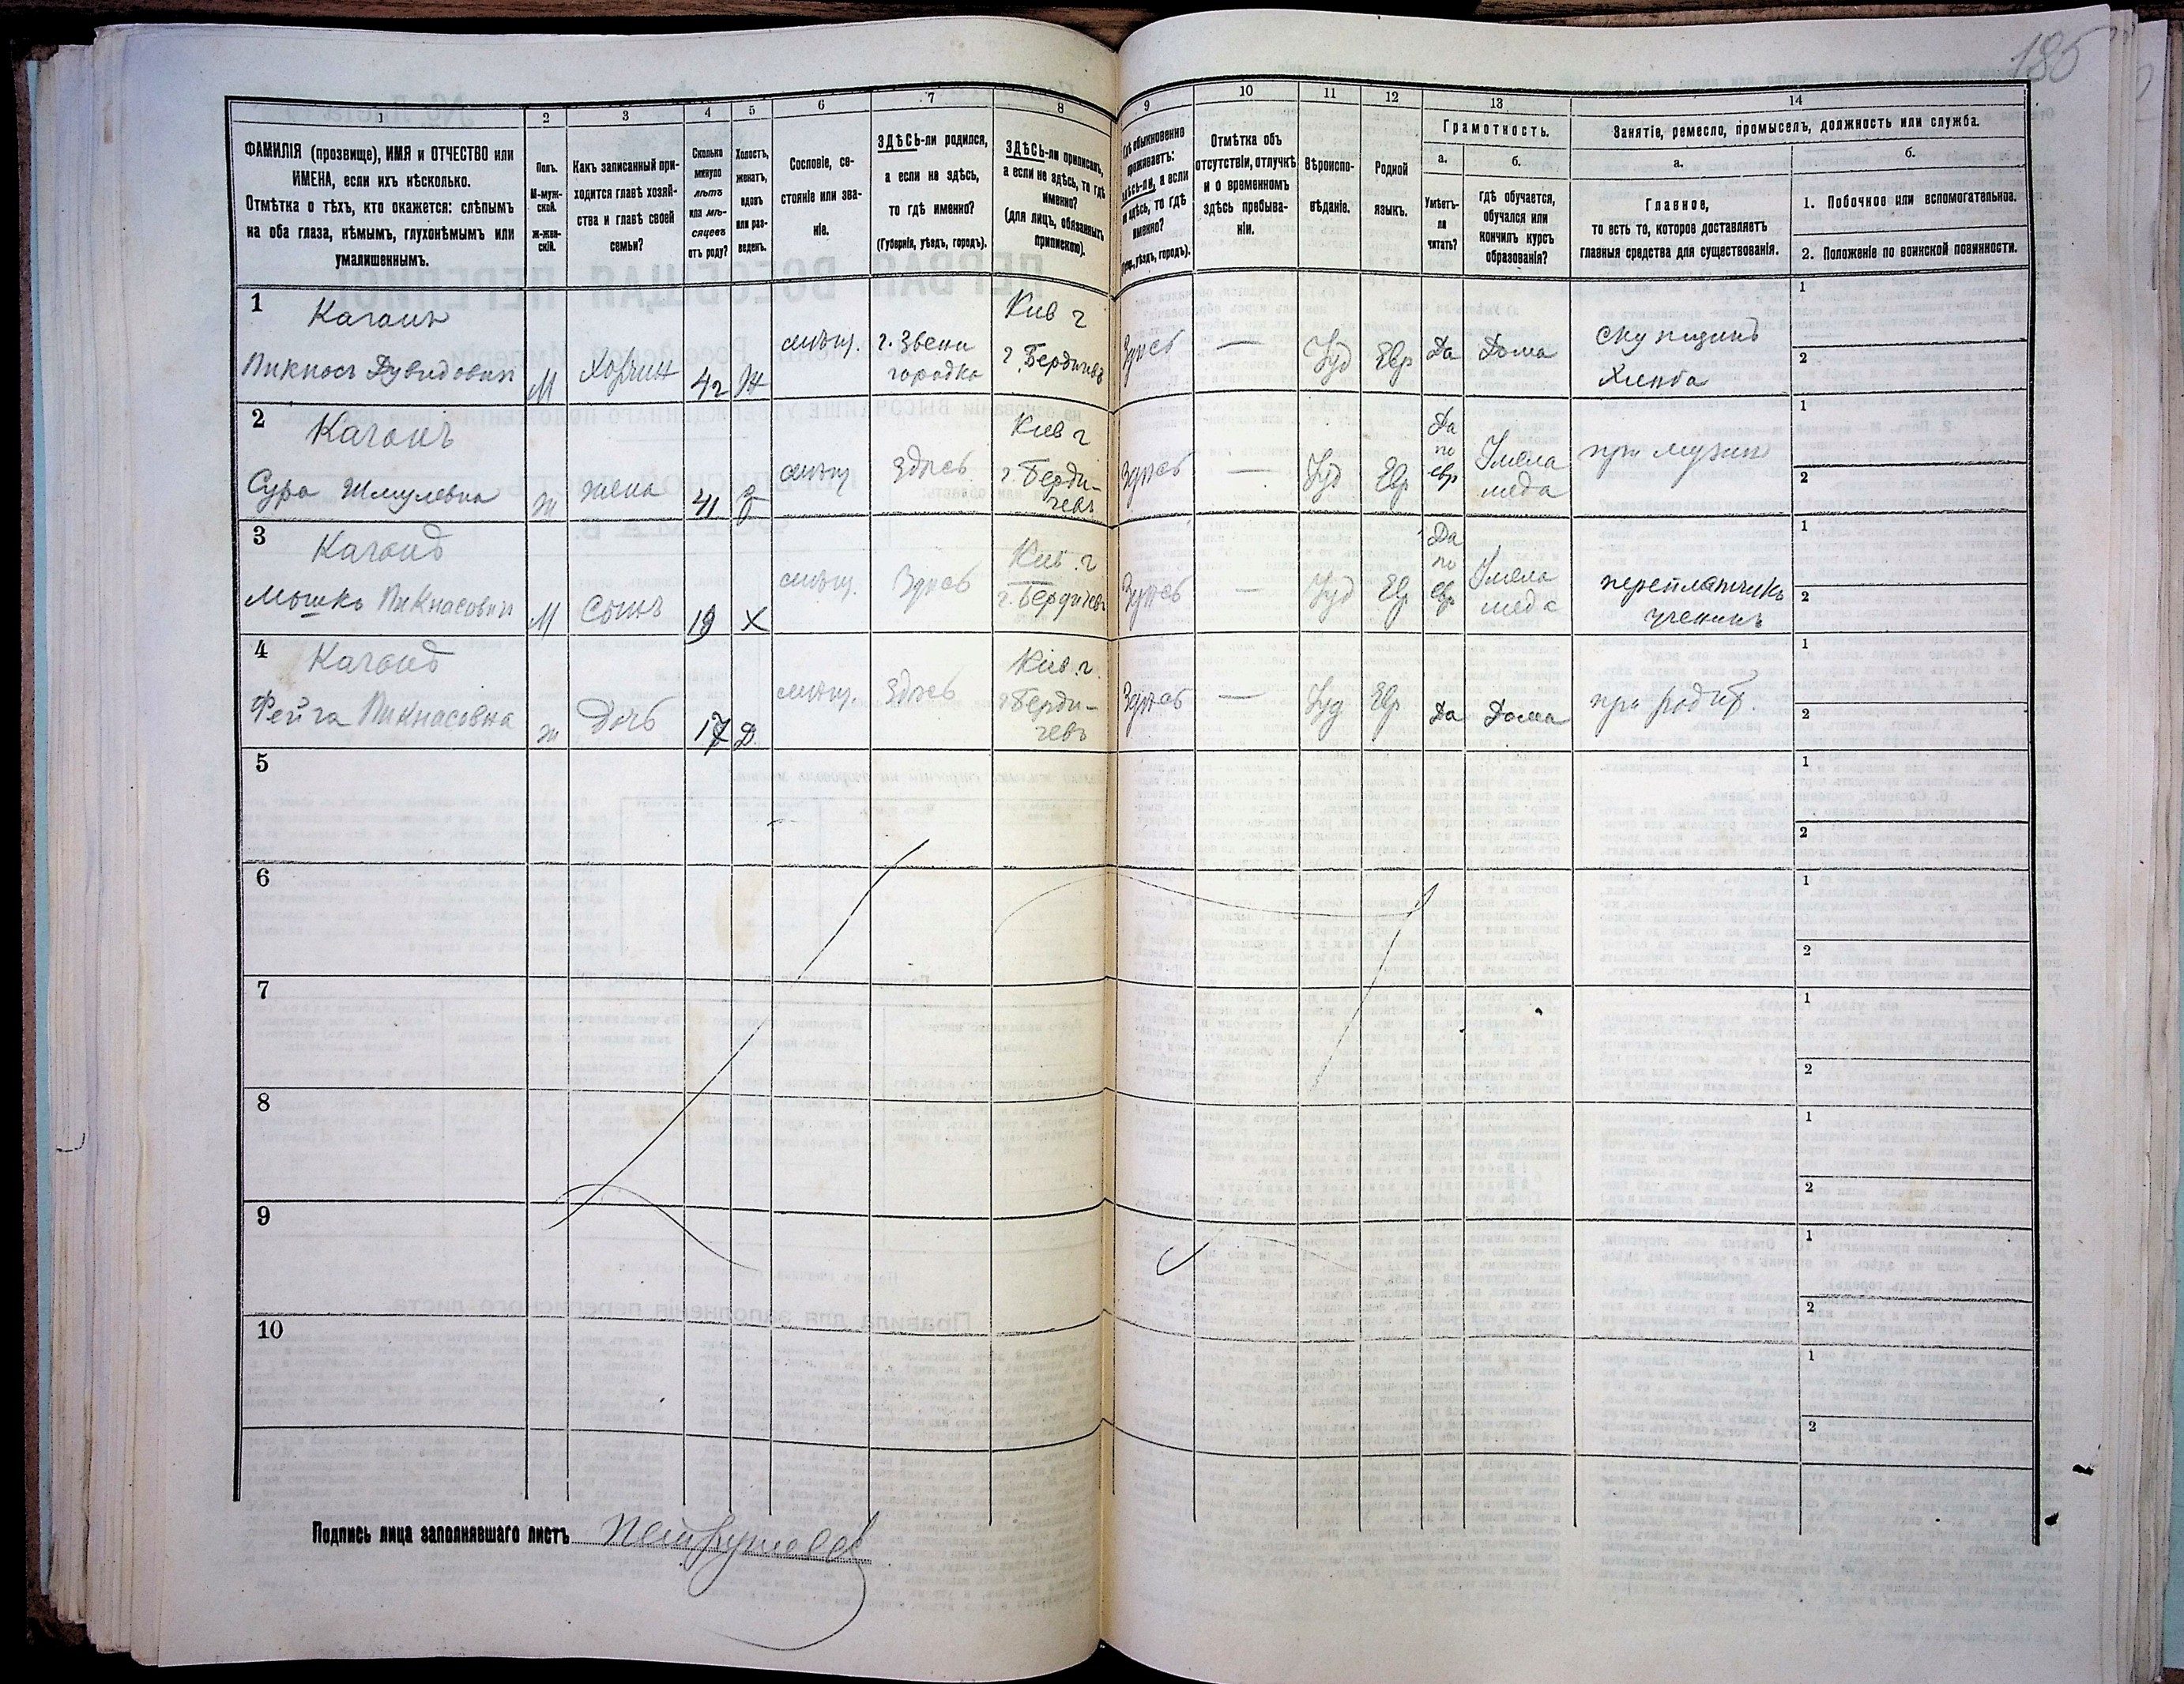 185
1
2
3
4
5
6
7
8
9
10
11
12
13
14
ФАМИЛІЯ (прозвище), ИМЯ и ОТЧЕСТВО или
ИМЕНА, если ихъ нѣсколько.
Отмѣтка о тѣхъ, кто окажется: слѣпымъ
на оба глаза, нѣмымъ, глухонѣмымъ или
умалишеннымъ.
Полъ.
М-муж-
ской.
Ж-жен-
скій.
Какъ записанный при-
ходится главѣ хозяй-
ства и главѣ своей
семьи?
Сколько
минуло
лѣтъ
или мѣ-
сяцевъ
отъ роду?
Холостъ,
женатъ,
вдовъ
или раз-
веденъ.
Сословіе, со-
стояніе или зва-
ніе.
ЗДѢСЬ-ли родился,
а если не здѣсь,
то гдѣ именно?
(Губернія, уѣздъ, городъ).
ЗДѢСЬ-ли приписанъ,
а если не здѣсь, то гдѣ
именно?
(для лицъ, обязанныхъ
припиской).
Гдѣ обыкновенно
проживаетъ:
здѣсь-ли, а если
не здѣсь, то гдѣ
именно?
(Губ., уѣздъ, городъ).
Отмѣтка объ
отсутствіи, отлучкѣ
и о временномъ
здѣсь пребыва-
ніи.
Вѣроиспо-
вѣданіе.
Родной
языкъ.
Грамотность.
а.
б.
Умѣетъ-
ли
читать?
гдѣ обучается,
обучался или
кончилъ курсъ
образованія?
Занятіе, ремесло, промыселъ, должность или служба.
а.
б.
Главное,
то есть то, которое доставляетъ
главныя средства для существованія.
1. Побочное или вспомогательное.
2. Положеніе по воинской повинности.
1
Каганъ
Пикносъ Дувидовичъ
М
Хозяинъ
42
Ж
мѣщ.
г. Звени
городка
Кив г
г. Бердичевъ
Здѣсь
—
Іуд
Евр
Да
Дома
хлѣба
1
2
2
Каганъ
Сура Шмулевна
ж
жена
41
З
мѣщ
Здѣсь
Кив г
г. Берди-
чевъ
Здѣсь
—
Іуд
Евр
Да
по
евр
У мела
меда
при мужѣ
1
2
3
Каганъ
Мошко Пикнасовичъ
М
Сынъ
19
Х
мѣщ.
Здѣсь
Кив. г
г. Бердичевъ
Здѣсь
—
Іуд
Евр
Да
по
евр
У мела
меда
переплетчикъ
ученикъ
1
2
4
Каганъ
Фейга Пикнасовна
ж
Дочь
17
Д
мѣщ.
Здѣсь
Кив. г.
г Берди-
чевъ
Здѣсь
—
Іуд
Евр
Да
Дома
при родит.
1
2
5
1
2
6
1
2
7
1
2
8
1
2
9
1
2
10
1
2
Подпись лица заполнявшаго листъ